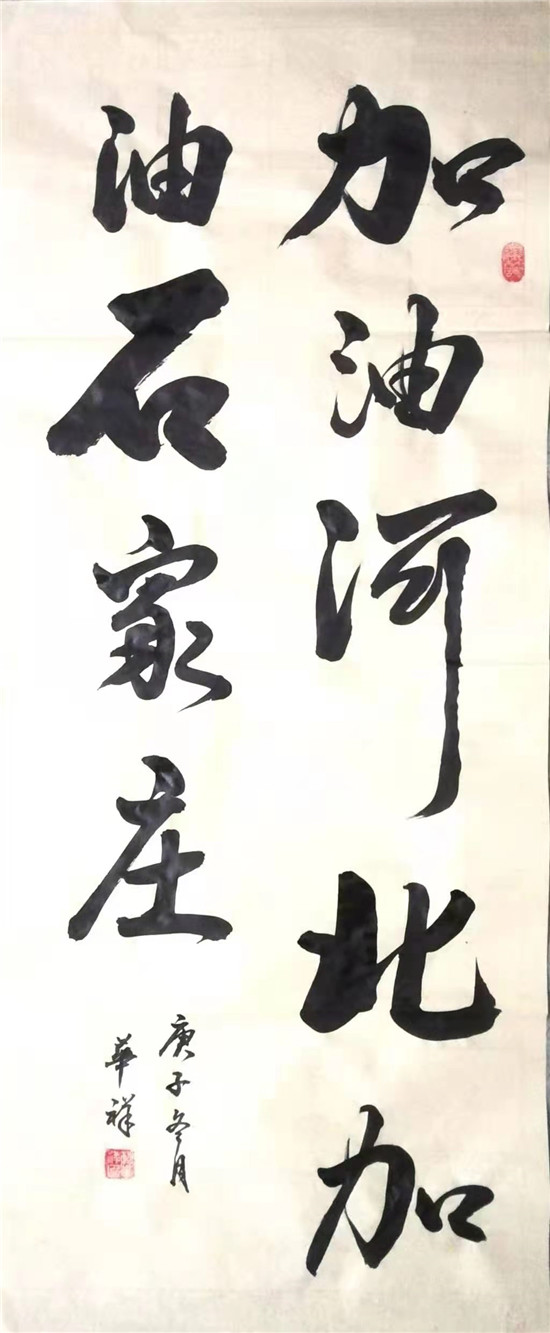 加油河北加
油石家庄
庚子冬月
華祥